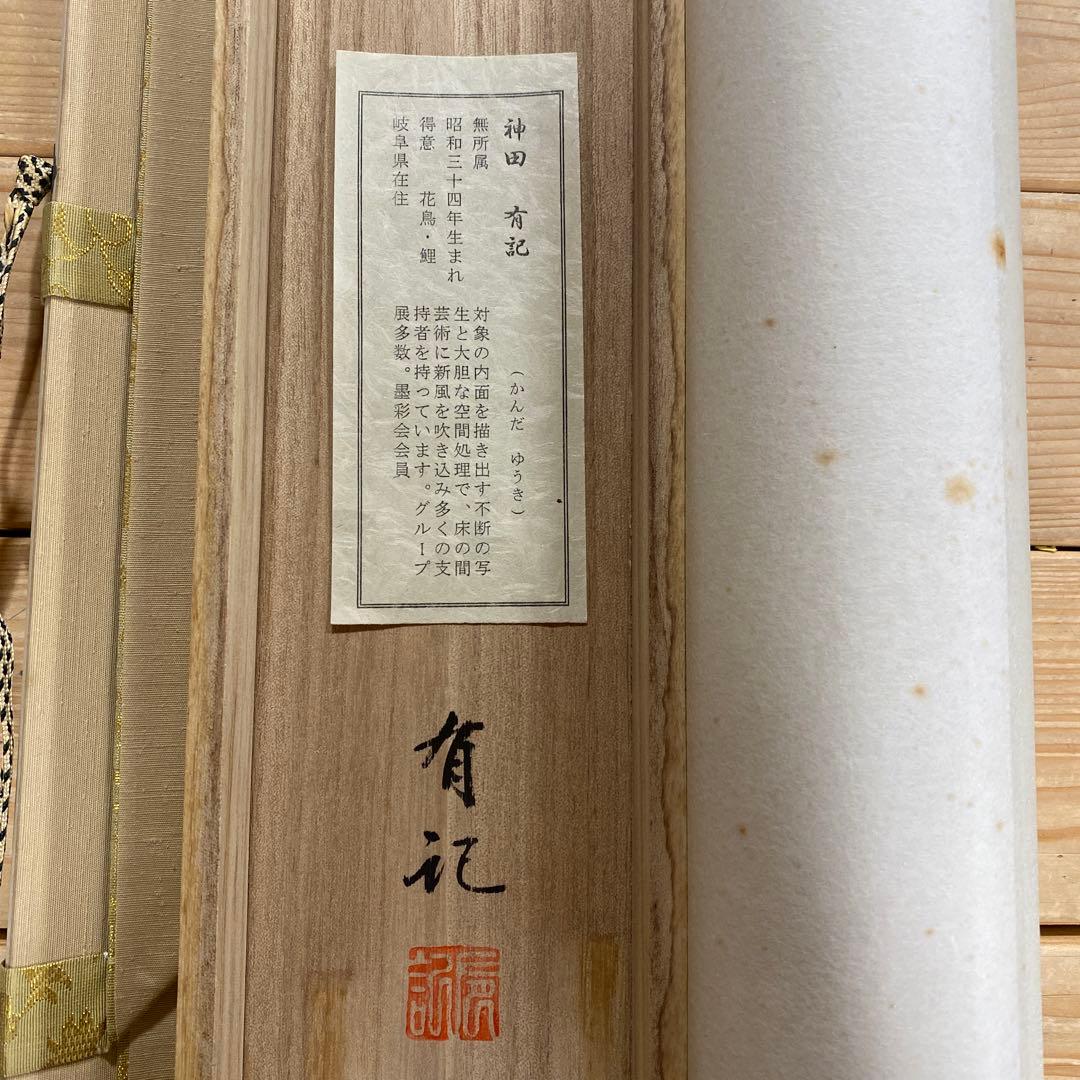 神田 有記
(かんだ ゆうき)
無所属
昭和三十四年生まれ
得意 花鳥・鯉
岐阜県在住
対象の内面を描き出す不断の写
生と大胆な空間処理で、床の間
芸術に新風を吹き込み多くの支
持者を持っています。グループ
展多数。墨彩会会員
有記